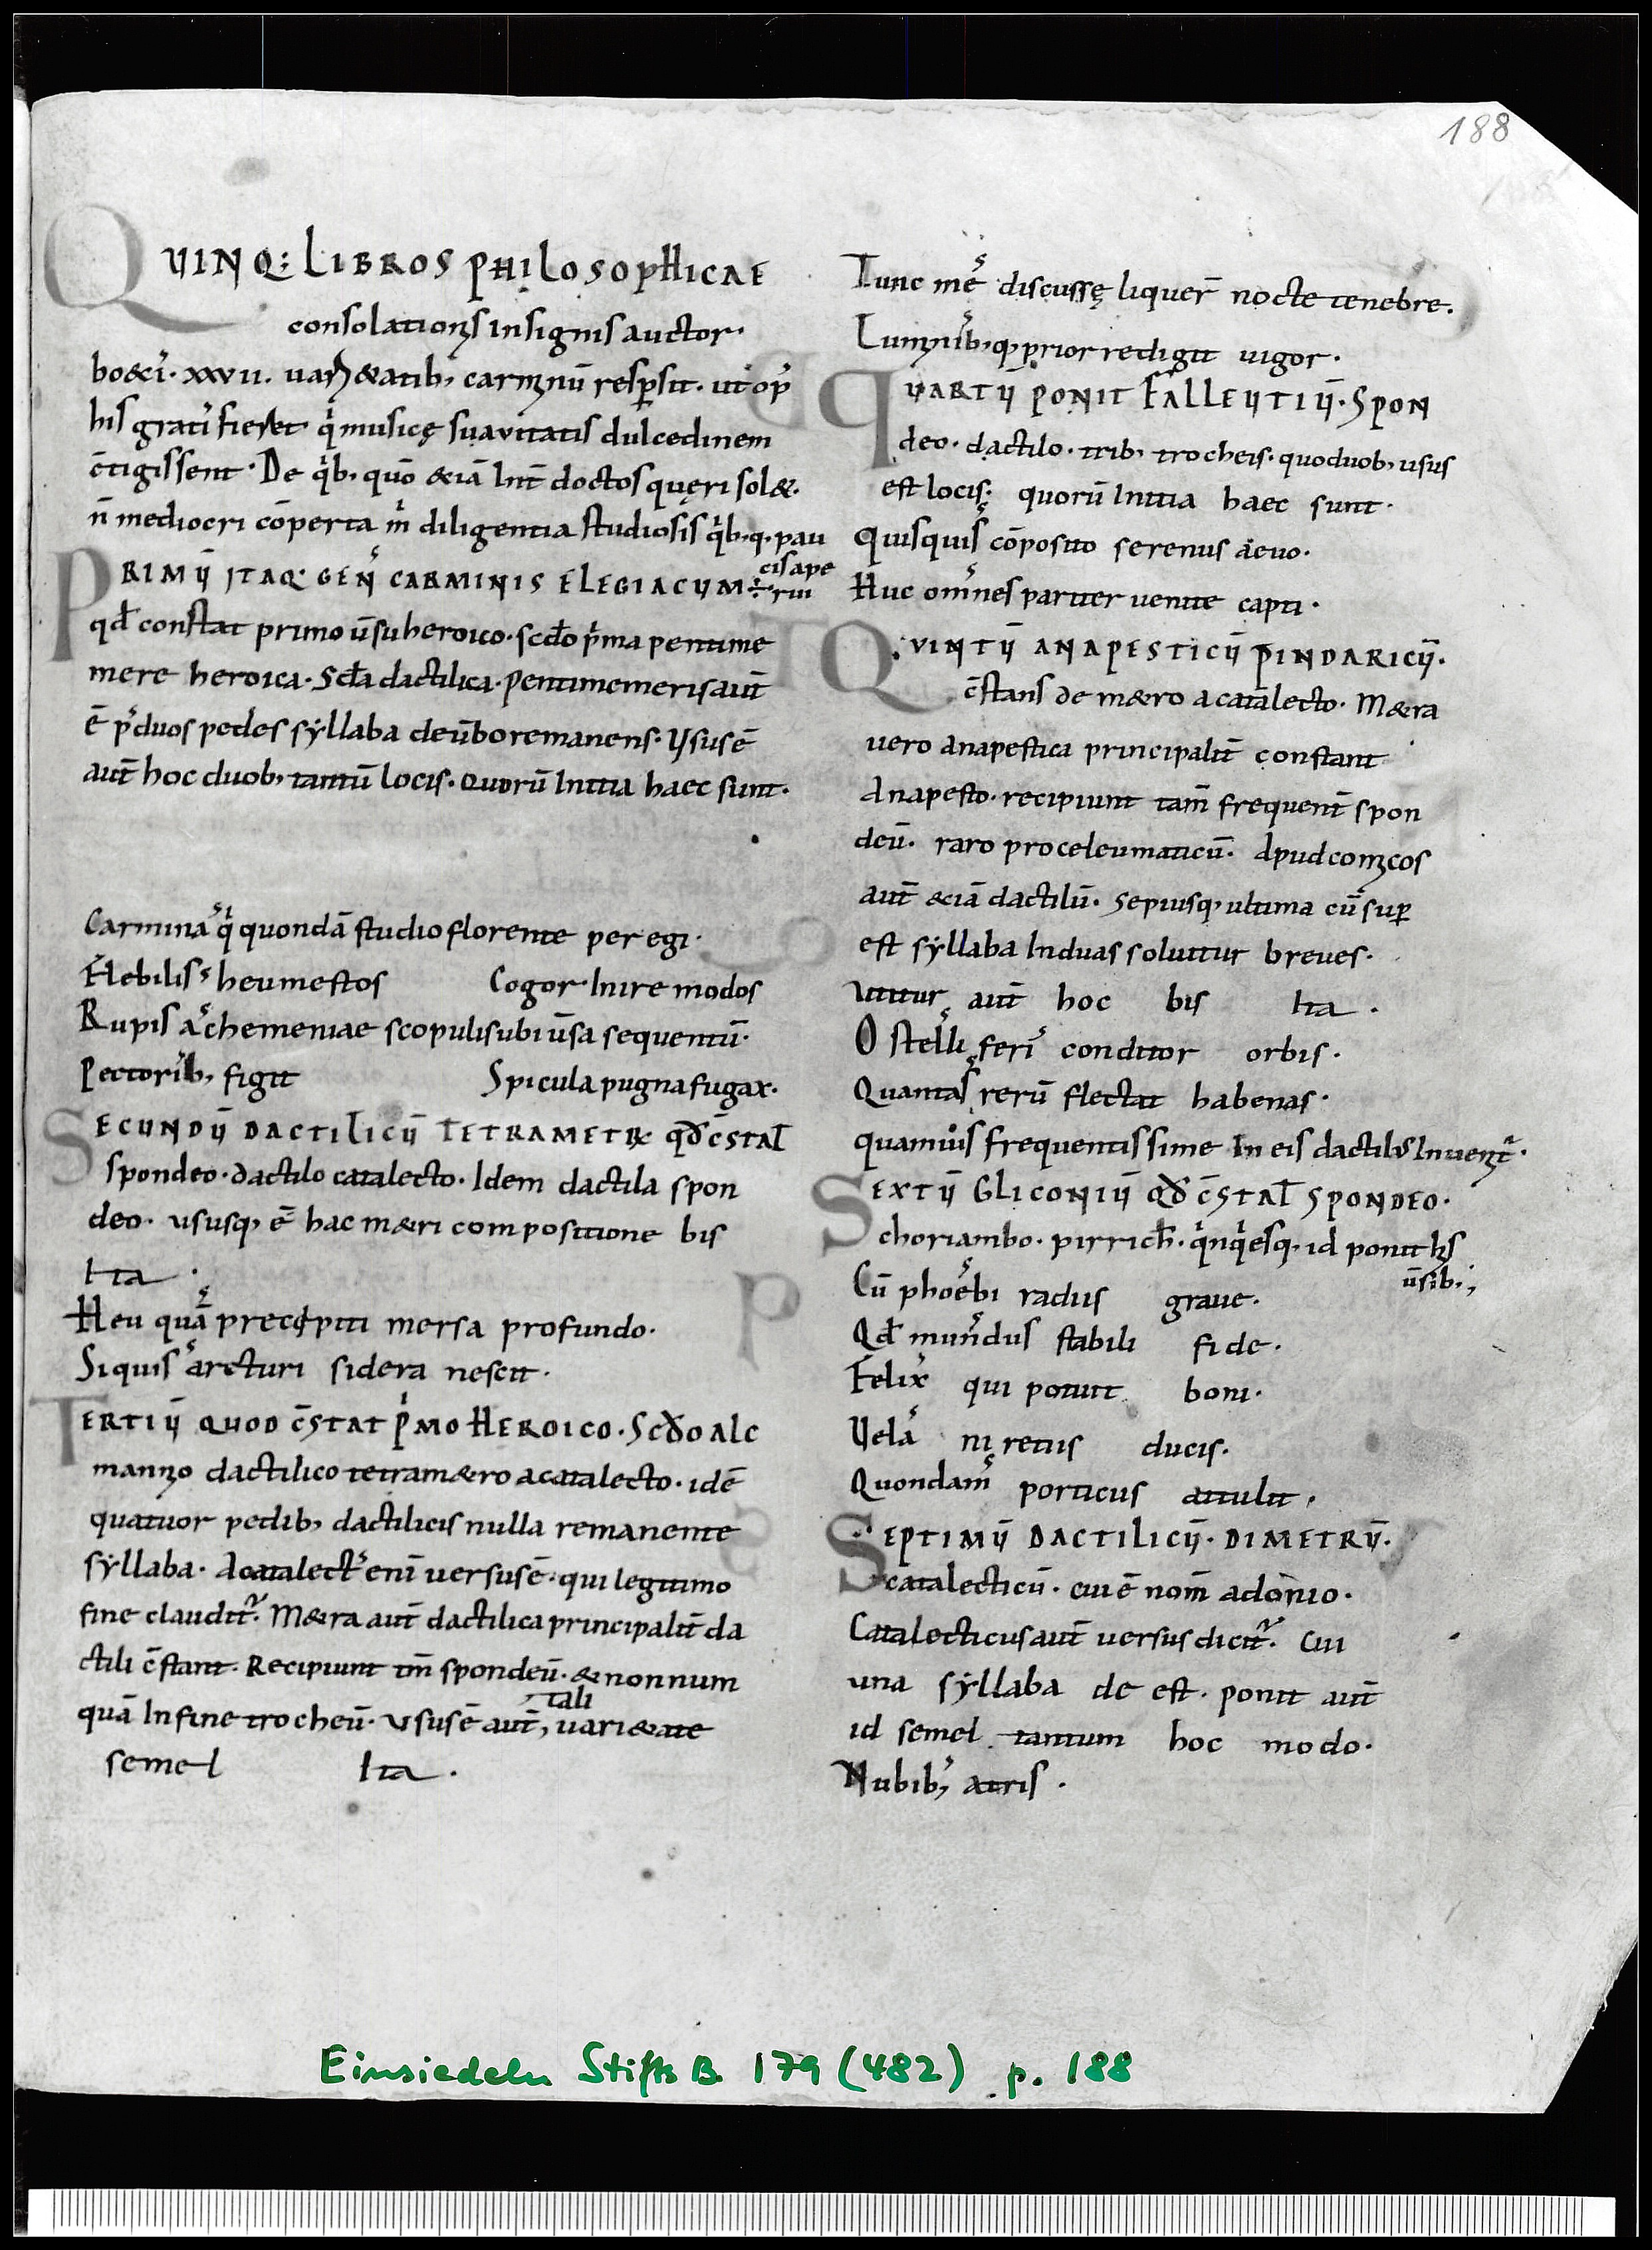 188
QUINQ: LIBROS PHILOSOPHICAE
consolationis insignis auctor·
boeci᾿· xxvii. uariaetatib; carminū resp̄sit. ut op᾿
his grati᾿ fieret qͥ musicę suauitatis dulcedinem
c̄tigissent· De qͥb; quō &iā Int̄ doctos queri sol&.
n̄ mediocri cōperta m̄ diligentia studiosis qͥb;q. pau
cis ape
rui
PRIMŪ ITAQ· GEN᾿ CARMINIS ELEGIACUM ÷
qđ constat primo ūsu heroico· scđo pͥma pentime
mere heroica· Scđa dactilica· Pentimemeris aut̄
ē p᾿ duos pedes syllaba de ūbo remanens· Usus ē
aut̄ hoc duob; tantū locis· quorū Initia haec sunt·
Carmina qͥ quondā studio florente peregi·
Flebilis heu mestos Cogor· Inire modos
Rupis achemeniae scopulis ubi ūsa sequentū·
Pectorib; figit Spicula pugna fugax·
SECUNDŪ DACTILICŪ TETRAMETR qđ C̄STAT
spondeo· dactilo catalecto· Idem dactila spon
deo· ususq; ē hac m&ri compositione bis
Ita·
Heu quā precipiti mersa profundo·
Si quis arcturi sidera nescit·
TERTIŪ QUOD C̄STAT PͥMO HEROICO· SCĐO ALC
manio dactilico tetram&ro acatalecto· idē
quatuor pedib; dactilicis nulla remanente
syllaba· Acatalect᾿ enī uersus ē· qui legitimo
fine claudit᾿· M&ra aut̄ dactilica principalit̄ da
ctili c̄stant· Recipiunt tm̄ spondeū· & nonnum
quā In fine trocheū· Usus ē aut̄, uari&ate
tali
semel Ita·
Tunc me discussę liquer̄ nocte tenebre.
Luminib;q; prior redigit uigor·
QUARTŪ PONIT FALLEUTIŪ· SPON
deo· dactilo· trib; trocheis· quo duob; usus
est locis; quorū Initia haec sunt·
Quisquis cōposito serenus aeuo·
Huc omnes pariter uenite capti·
QUINTŪ ANAPESTICŪ PINDARICŪ·
c̄stans de m&ro acatalecto· M&ra
uero anapestica principalit̄ constant
Anapesto· recipiunt tam̄ frequent̄ spon
deū· raro proceleumaticū· Apud comicos
aut̄ &iā dactilū· Sepiusq; ultima cū sup
est syllaba In duas soluitur breues·
Utitur aut̄ hoc bis Ita·
O stelliferi conditor orbis·
Quantas rerū flectat habenas·
quamuis frequentissime In eis dactil᾿ Inuenit᾿·
SEXTŪ GLICONIŪ QĐ C̄STAT SPONDEO·
choriambo· pirrich· qͥnqͥesq; id ponit his
ūsib;
Cū phoebi radiis graue·
Qđ mundus stabili fide·
Felix qui potuit boni·
Uela ni retius ducis·
Quondam porticus attulit,
SEPTIMŪ DACTILICŪ· DIMETRŪ·
catalecticū· cui ē nom̄ adonio·
Catalecticus aut̄ uersus dicit᾿· Cui
una syllaba de est· ponit aut̄
id semel tantum hoc modo·
Nubib; atris·
Einsiedeln Stifts B. 179 (482) p. 188